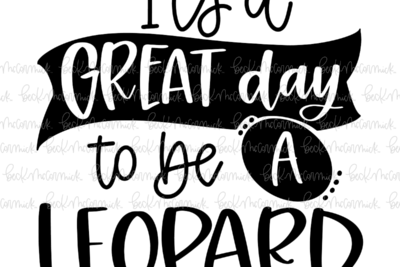 It's a
GREAT day
to be A
LEOPARD